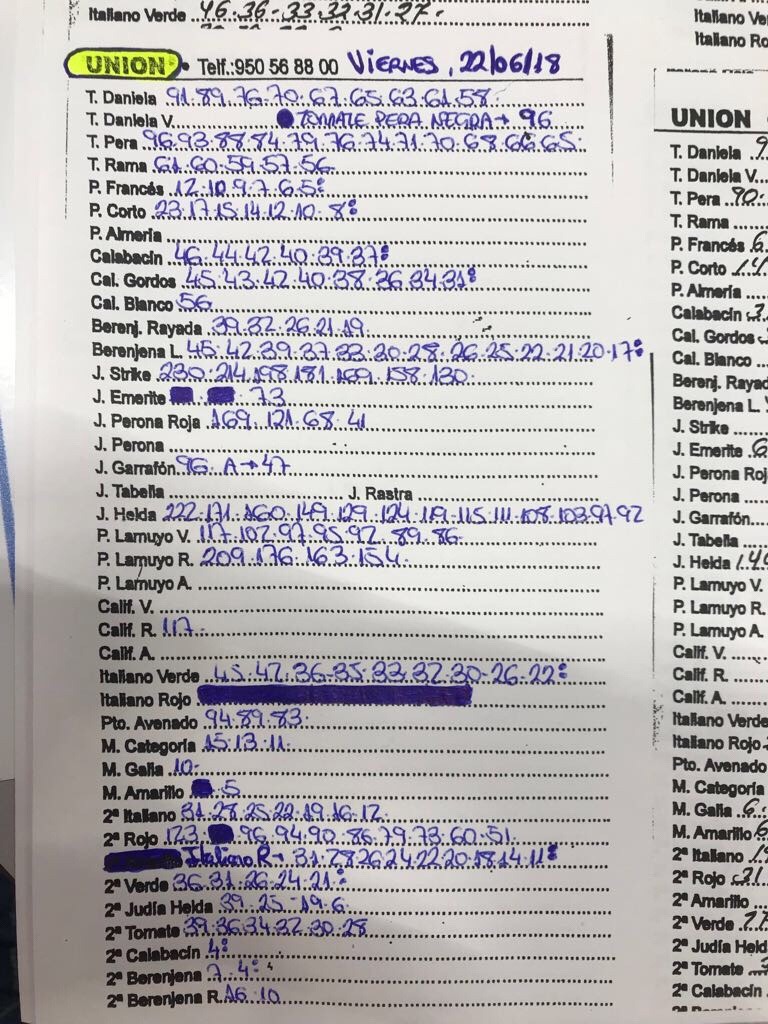 Italiano Verde 46.36.33.32.31.27.
UNION • Telf.:950 56 88 00 VIERNES, 22/06/18
T. Daniela 91.89.76.70.67.65.63.61.58.
T. Daniela V. TOMATE PERA NEGRA→ 96
T. Pera 96.93.88.84.79.76.74.71.70.68.66.65.
T. Rama 61.60.59.57.56
P. Francés 12.10.9.7.6.5:
P. Corto 23.17.15.14.12.10.8:
P. Almeria
Calabacin 46.44.42.40.39.37:
Cal. Gordos 45.43.42.40.38.36.34.31:
Cal. Blanco 56
Berenj. Rayada 39.32.26.21.19.
Berenjena L. 45.42.39.37.33.30.28.26.25.22.21.20.17:
J. Strike 230.214.198.181.169.158.130.
J. Emerite 73
J. Perona Roja 169.121.68.41
J. Perona
J. Garrafón 96. A→47
J. Tabella J. Rastra
J. Helda 222.171.160.149.129.124.119.115.111.108.103.97.92
P. Lamuyo V. 117.102.97.95.92.89.86.
P. Lamuyo R. 209.176.163.154.
P. Lamuyo A.
Calif. V.
Calif. R. 117.
Calif. A.
Italiano Verde 45.42.36.35.33.32.30.26.22:
Italiano Rojo
Pto. Avenado 94.89.83.
M. Categoria 15.13.11.
M. Galia 10.
M. Amarillo 5
2ª Italiano 31.28.25.22.19.16.12.
2ª Rojo 123. 96.94.90.86.79.73.60.51.
Italiano R→ 31.28.26.24.22.20.18.14.11:
2ª Verde 36.31.26.24.21:
2ª Judía Helda 39.25.19.6
2ª Tomate 39.36.34.32.30.28
2ª Calabacín 4:
2ª Berenjena 7.4:
2ª Berenjena R. 16.10
Italiano Ve
Italiano Ro
UNION
T. Daniela 9
T. Daniela V.
T. Pera 90.
T. Rama
P. Francés 6
P. Corto 14
P. Almeria
Calabacín 3
Cal. Gordos
Cal. Blanco
Berenj. Rayad
Berenjena L.
J. Strike
J. Emerite 6
J. Perona Roj
J. Perona
J. Garrafón
J. Tabella
J. Helda 14
P. Lamuyo V.
P. Lamuyo R.
P. Lamuyo A.
Calif. V.
Calif. R.
Calif. A.
Italiano Verde
Italiano Rojo
Pto. Avenado
M. Categoria
M. Galia 6.
M. Amarillo 6
2ª Italiano 19
2ª Rojo 31
2ª Amarillo
2ª Verde 21
2ª Judía Held
2ª Tomate
2ª Calabacín